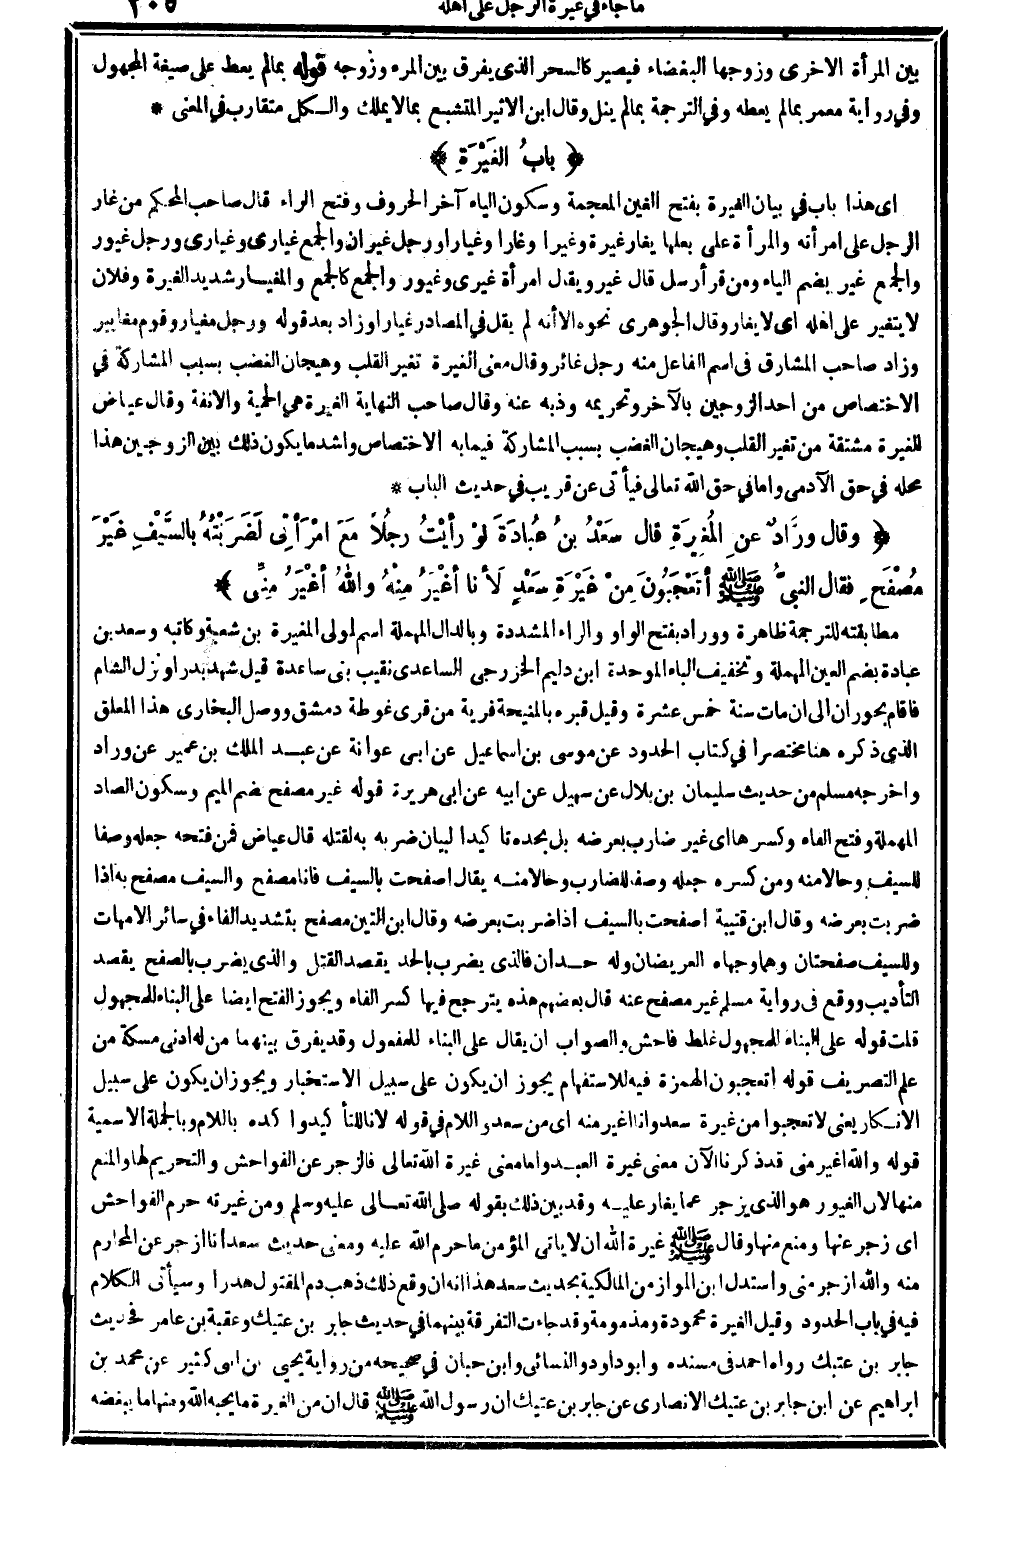 ماجاء في غيرة الرجل على أهله ٢٠٥
بين المرأة الاخرى وزوجها البغضاء فيصير كالسحر الذى يفرق بين المرء وزوجه قوله بمالم يعط على صيغة المجهول
وفي رواية معمر بمالم يعطه وفي الترجمة بمالم ينل وقال ابن الاثير المتشبع بمالا يملك والكل متقارب في المعنى *
﴿ بابُ الغَيْرَةِ ﴾
اى هذا باب في بيان الغيرة بفتح الغين المعجمة وسكون الياء آخر الحروف وفتح الراء قال صاحب المحكم من غار
الرجل على امرأته والمرأة على بعلها يغار غيرة وغيرا وغارا وغيارا ورجل غيران والجمع غيارى وغيارى ورجل غيور
والجمع غير بضم الياء ومن قرأ رسل قال غير ويقال امرأة غيرى وغيور والجمع كالجمع والمغيار شديد الغيرة وفلان
لا يتغير على اهله اى لا يغار وقال الجوهرى نحوه الا أنه لم يقل في المصادر غيارا وزاد بعد قوله ورجل مغيار وقوم مغايير
وزاد صاحب المشارق فى اسم الفاعل منه رجل غائر وقال معنى الغيرة تغير القلب وهيجان الغضب بسبب المشاركة في
الاختصاص من احد الزوجين بالآخر وتحريمه وذبه عنه وقال صاحب النهاية الغيرة هي الحمية والانفة وقال عياض
للغيرة مشتقة من تغير القلب وهيجان الغضب بسبب المشاركة فيما به الاختصاص واشد ما يكون ذلك بين الزوجين هذا
محله في حق الآدمى واما في حق الله تعالى فيأتى عن قريب في حديث الباب *
﴿ وقال ورَّادٌ عنِ المُغِيرَةِ قال سَعْدُ بنُ عُبادَةَ لوْ رأيْتُ رجُلاً مَعَ امْرَأتِى لَضَرَبْتُهُ بالسَّيْفِ غَيْرَ
مُصْفَحٍ فقال النبيُّ ﷺ أتَعْجَبُونَ مِنْ غَيْرَةِ سَعْدٍ لَأنا أغْيَرُ مِنْهُ واللهُ أغْيَرُ مِنِّى ﴾
مطابقته للترجمة ظاهرة ووراد بفتح الواو والراء المشددة وبالدال المهملة اسم لمولى المغيرة بن شعبة وكاتبه وسعد بن
عبادة بضم العين المهملة وتخفيف الباء الموحدة ابن دليم الخزرجى الساعدى نقيب بنى ساعدة قيل شهد بدرا ونزل الشام
فاقام بحوران الى ان مات سنة خمس عشرة وقيل قبره بالمنيحة قرية من قرى غوطة دمشق ووصل البخارى هذا المعلق
الذى ذكره هنا مختصرا في كتاب الحدود عن موسى بن اسماعيل عن ابى عوانة عن عبد الملك بن عمير عن وراد
واخرجه مسلم من حديث سليمان بن بلال عن سهيل عن ابيه عن ابى هريرة قوله غير مصفح بضم الميم وسكون الصاد
المهملة وفتح الفاء وكسرها اى غير ضارب بعرضه بل بحده تاكيدا لبيان ضربه به لقتله قال عياض فمن فتحه جعله وصفا
للسيف وحالا منه ومن كسره جعله وصفا للضارب وحالا منه يقال اصفحت بالسيف فانا مصفح والسيف مصفح به اذا
ضربت بعرضه وقال ابن قتيبة اصفحت بالسيف اذا ضربت بعرضه وقال ابن التين مصفح بتشديد الفاء في سائر الامهات
وللسيف صفحتان وهما وجهاه العريضان وله حدان فالذى يضرب بالحد يقصد القتل والذى يضرب بالصفح يقصد
التأديب ووقع فى رواية مسلم غير مصفح عنه قال بعضهم هذه يترجح فيها كسر الفاء ويجوز الفتح ايضا على البناء للمجهول
قلت قوله على البناء للمجهول غلط فاحش والصواب ان يقال على البناء للمفعول وقد يفرق بينهما من له ادنى مسكة من
علم التصريف قوله اتعجبون الهمزة فيه للاستفهام يجوز ان يكون على سبيل الاستخبار ويجوز ان يكون على سبيل
الانكار يعنى لا تعجبوا من غيرة سعد وانا اغير منه اى من سعد واللام في قوله لانا للتأكيد واكده باللام وبالجملة الاسمية
قوله والله اغير منى قد ذكرنا الآن معنى غيرة العبد واما معنى غيرة الله تعالى فالزجر عن الفواحش والتحريم لها والمنع
منها لان الغيور هو الذى يزجر عما يغار عليه وقد بين ذلك بقوله صلى الله تعالى عليه وسلم ومن غيرته حرم الفواحش
اى زجر عنها ومنع منها وقال ﷺ غيرة الله ان لا ياتى المؤمن ما حرم الله عليه ومعنى حديث سعد أنا ازجر عن المحارم
منه والله ازجر منى واستدل ابن المواز من المالكية بحديث سعد هذا انه ان وقع ذلك ذهب دم المقتول هدرا وسيأتى الكلام
فيه في باب الحدود وقيل الغيرة محمودة ومذمومة وقد جاءت التفرقة بينهما في حديث جابر بن عتيك وعقبة بن عامر فحديث
جابر بن عتيك رواه احمد فى مسنده وابو داود والنسائى وابن حبان في صحيحه من رواية يحيى بن ابى كثير عن محمد بن
ابراهيم عن ابن جابر بن عتيك الانصارى عن جابر بن عتيك ان رسول الله ﷺ قال ان من الغيرة ما يحبه الله ومنها ما يبغضه